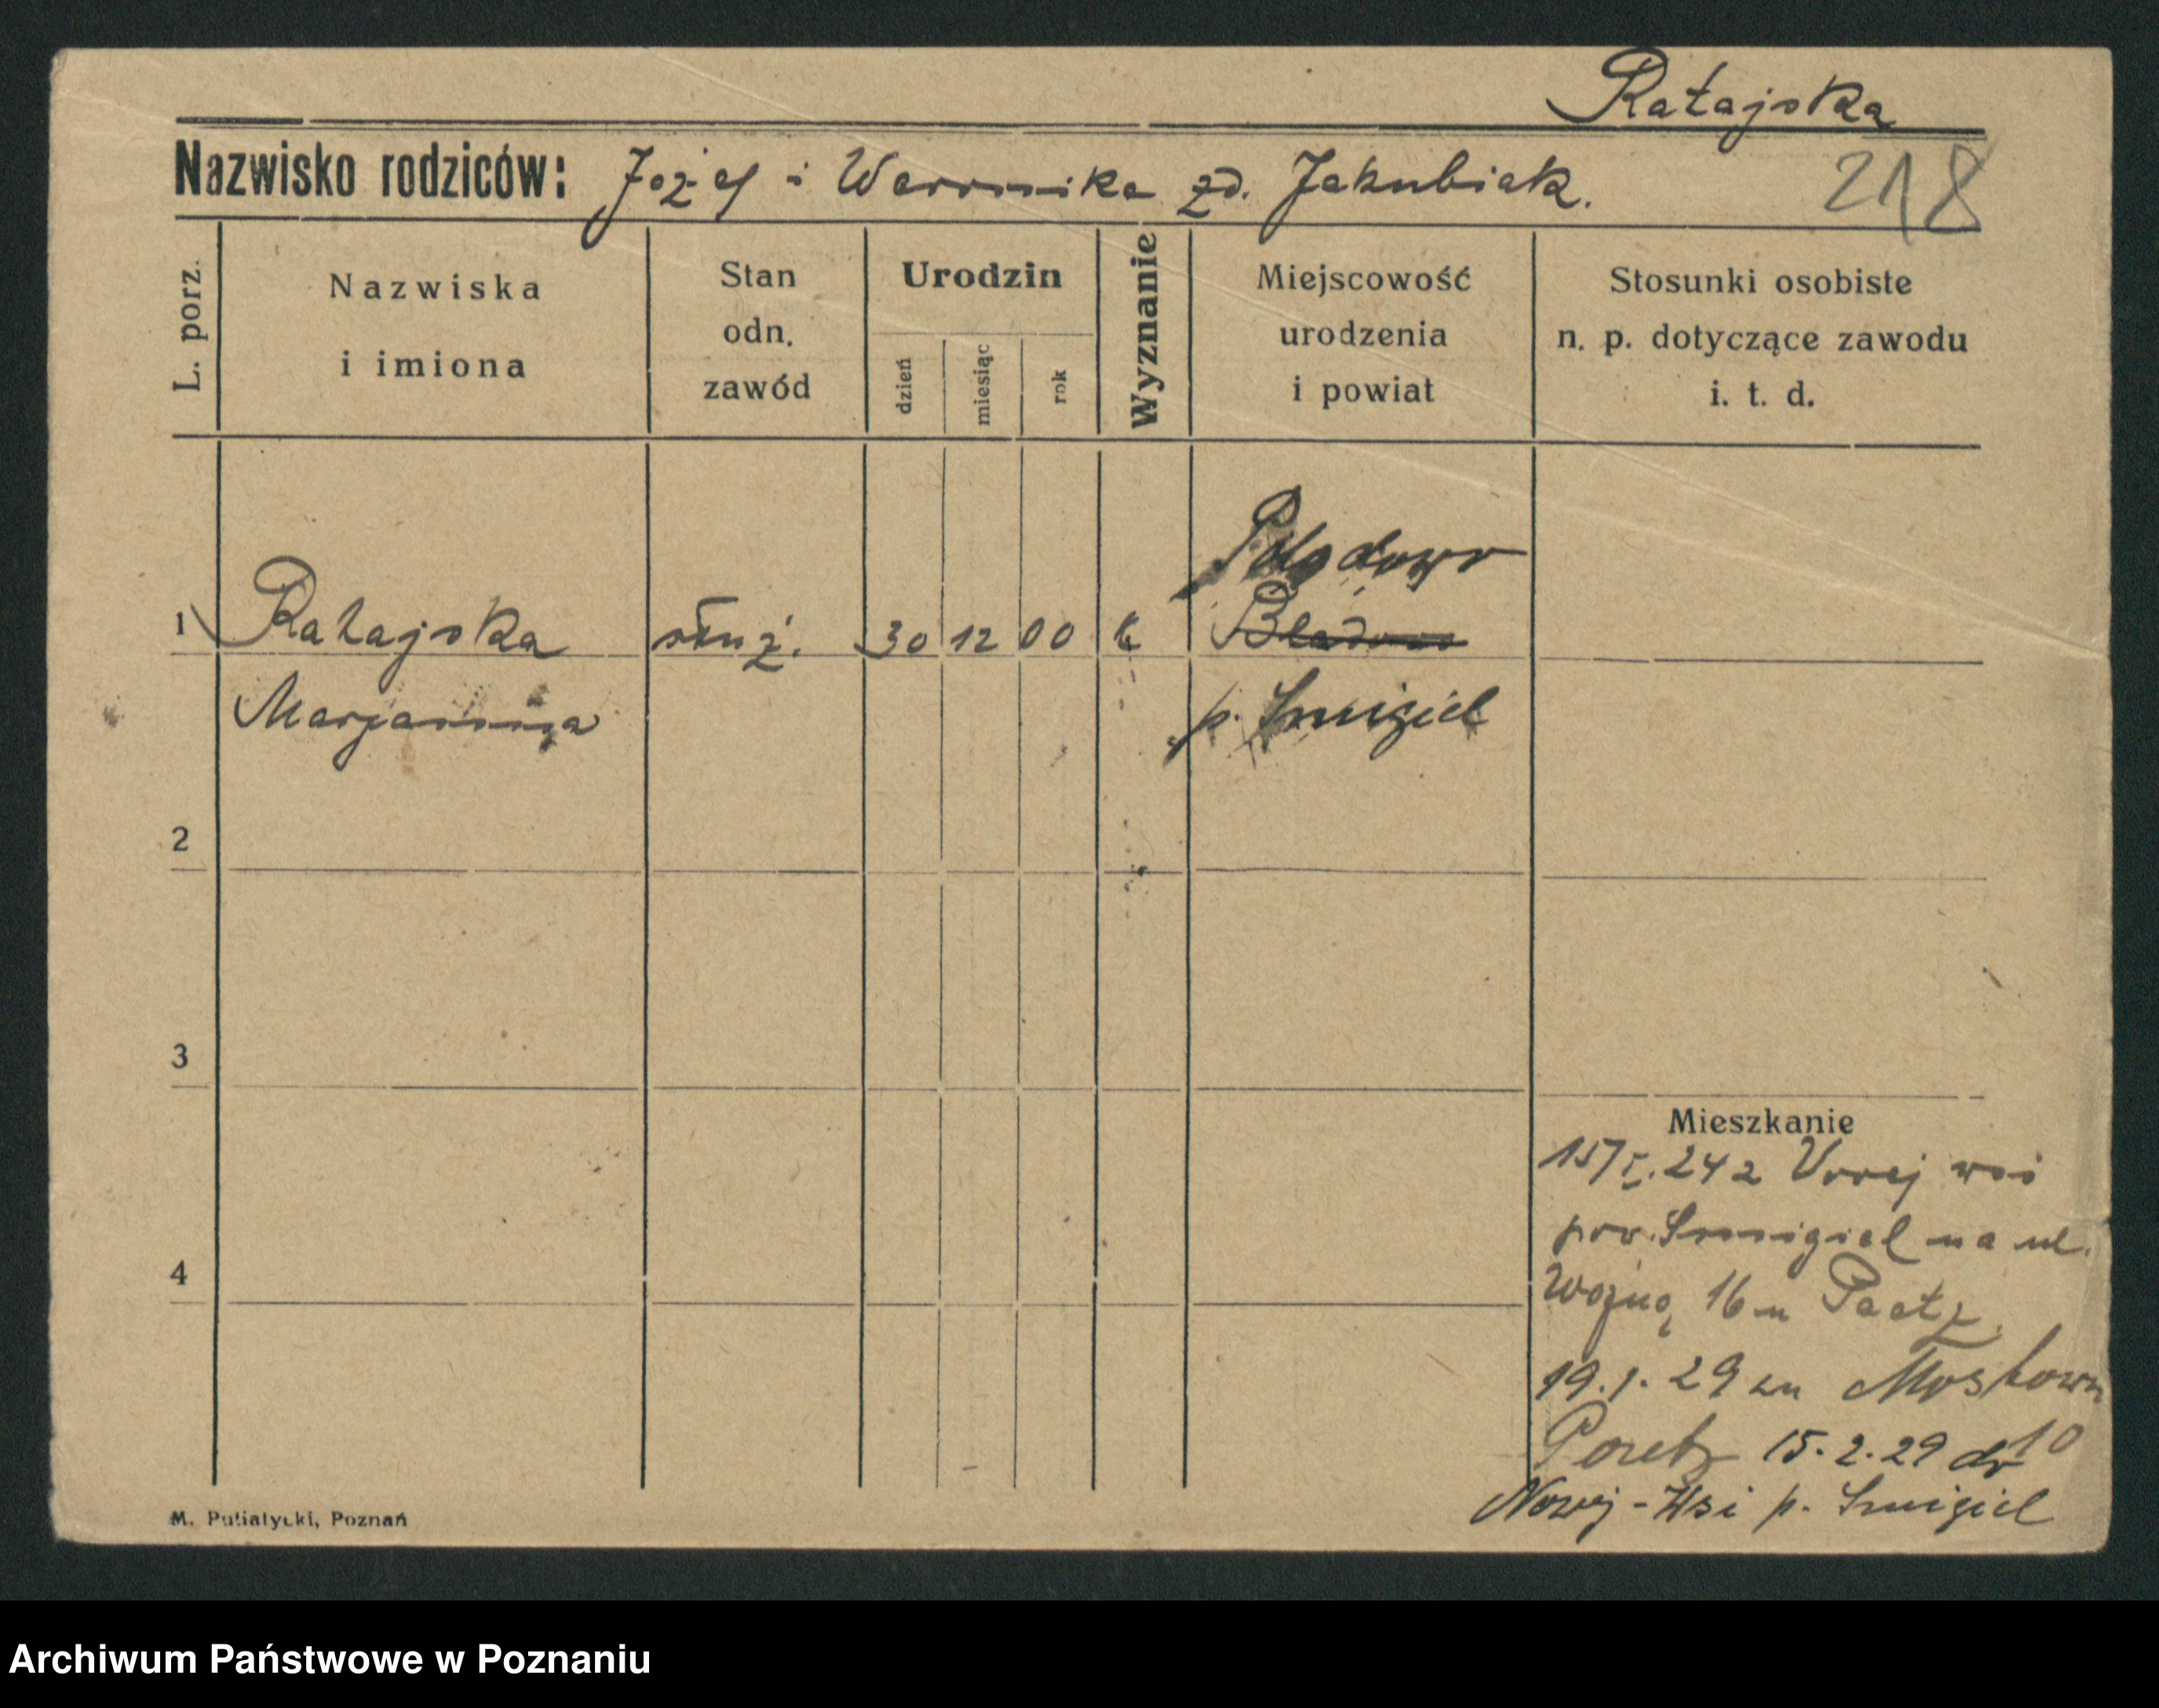 Ratajska
Nazwisko rodziców: Józef i Weronika zd. Jakubiak.
218
L. porz.
Nazwiska
i imiona
Stan
odn.
zawód
Urodzin
dzień
miesiąc
rok
Wyznanie
Miejscowość
urodzenia
i powiat
Stosunki osobiste
n. p. dotyczące zawodu
i. t. d.
1 Ratajska służ. 30 12 00 k
Bladowo
Marjanna p. Smigiel
2
3
Mieszkanie
15/I. 24 z Nowej wsi
pow. Smigiel na ul.
4
Wojną 16 u
19.1.29 Mostowa
10
15.2.29 do
Nowej-Wsi p. Smigiel
M. Putiatycki, Poznań
Archiwum Państwowe w Poznaniu